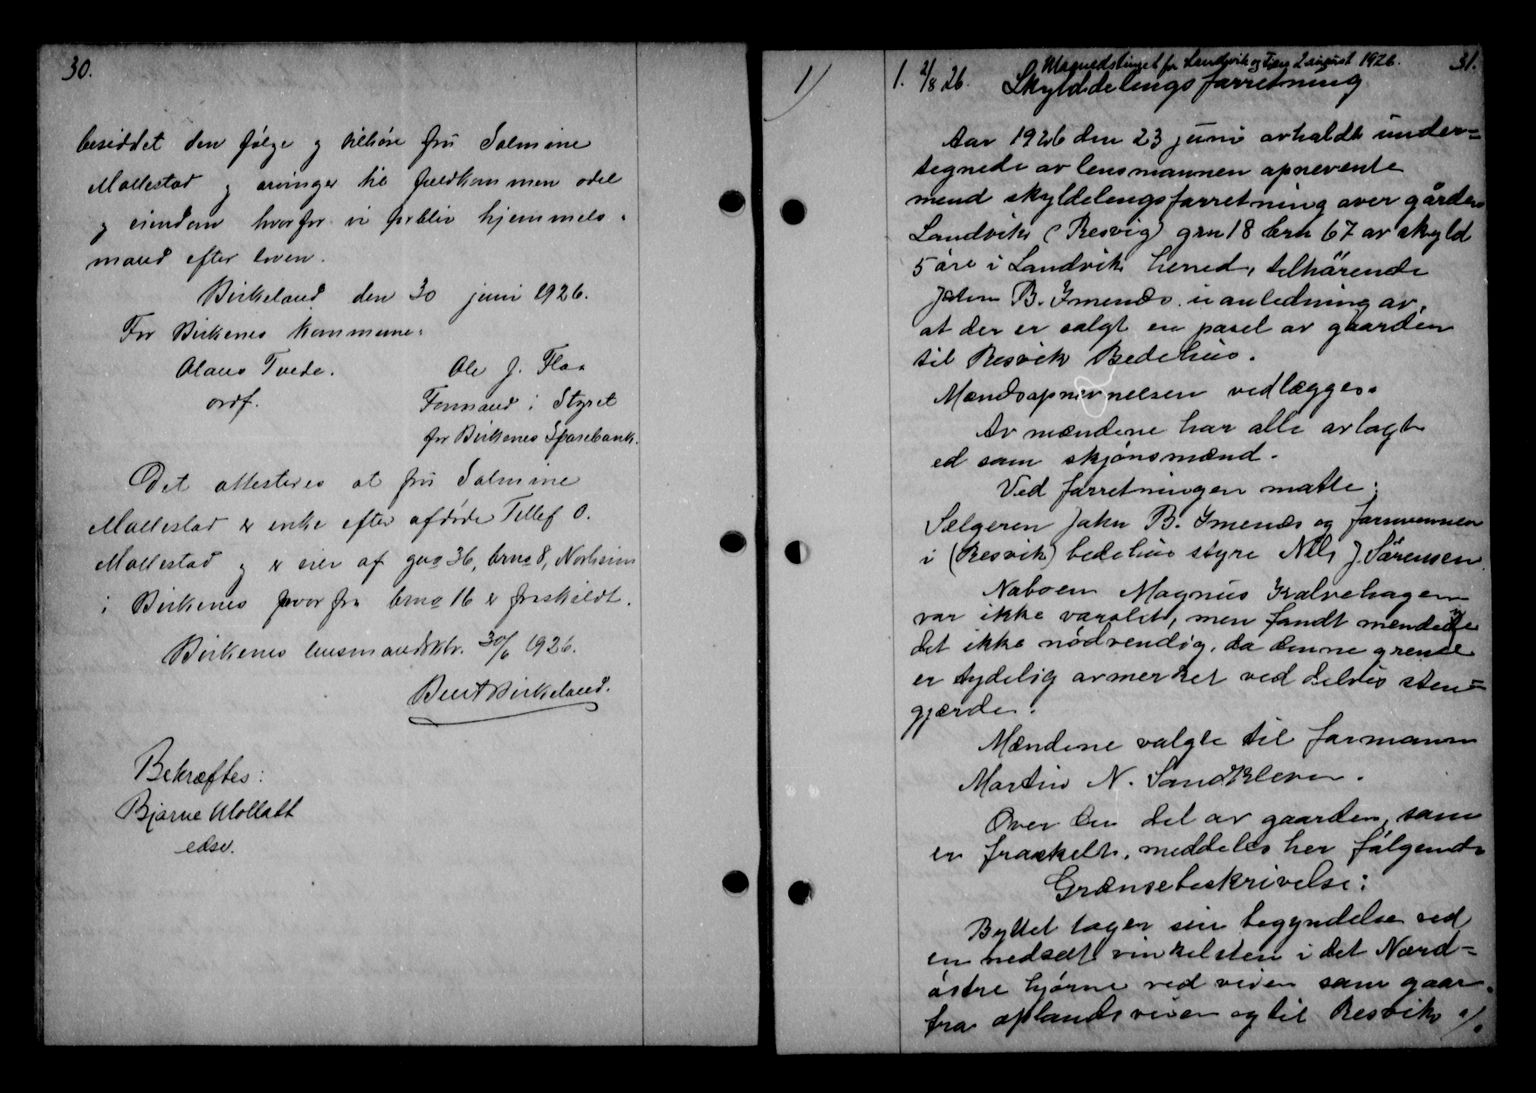 30.
besiddet den følge og tilhøre fru Salmine
Mollestad og arvinger til fuldkommen odel
og eiendom hvorfor vi forbliv hjemmels-
mænd efter loven.
Birkeland den 30 juni 1926.
For Birkenes kommune:
Olaus Tvede. Ole J. Flaa
ordf. Formand i Styret
for Birkenes Sparebank.
Det attesteres at fru Salmine
Mollestad er enke efter afdøde Tellef O.
Mollestad og er eier af gno 36, brno 8, Norheim
i Birkenes hvorfra brno 16 er fraskildt.
Birkenes lensmandsktr. 30/6 1926.
Bent Birkeland.
Bekræftes:
Bjarne Mollatt
edsv.
1)
1. 2/8 26. Maanedstinget for Landvik og Fjære 2 august 1926. 31.
Skylddelingsforretning
Aar 1926 den 23 juni avholdt under-
tegnede av lensmannen opnevente
mend skyldelingsforretning over gården
Landvik (Resvig) grn 18 brn 67 av skyld
5 øre i Landvik hered, tilhørende
John B. Omenås i anledning av,
at der er salgt en pasel av gaarden
til Resvik Bedehus.
Mændsopnevnelsen vedlægges.
Av mændene har alle avlagt
ed som skjønsmænd.
Ved forretningen møtte:
Sælgeren John B. Omenås og formannen
i (Resvik) bedehus styre Nils J. Sørensen.
Naboen Magnus Kalvehagen
var ikke varslet, men fandt mendene
det ikke nødvendig, da denne grense
er tydelig avmerket ved delvis sten-
gjærde.
Mændene valgte til formann
Martin N. Sandkleven.
Over den del av gaarden, som
er fraskelt, meddeles her følgende
Grænsebeskrivelse:
Byttet tager sin begyndelse ved
en nedsat vinkelsten i det Nord-
østre hjørne ved veien som gaar
fra oplandsveien og til Resvik ./.